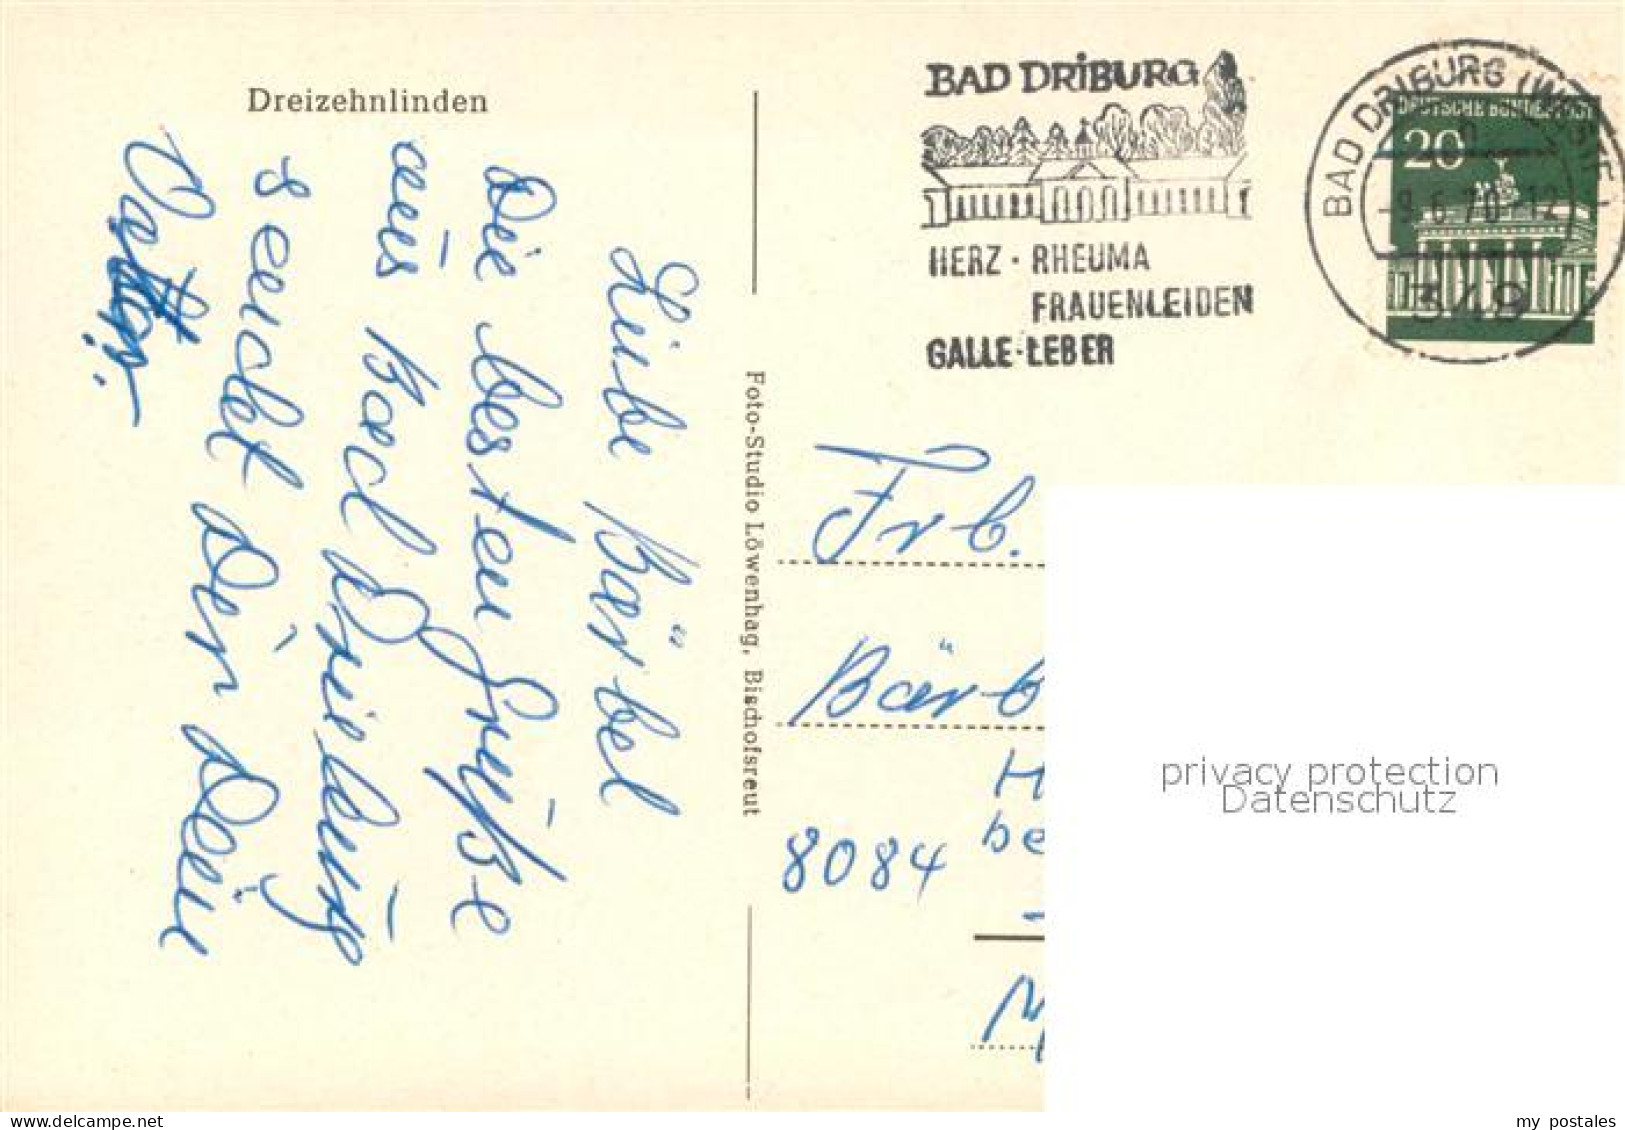 Dreizehnlinden
Liebe Bärbel
Die besten Grüße
aus Bad Driburg
sendet Dir Deine
Foto-Studio Löwenhag, Bischofsreut
BAD DRIBURG
HERZ · RHEUMA
FRAUENLEIDEN
GALLE · LEBER
BAD DRIBURG (WESTF)
-9.6.70-12
349
DEUTSCHE BUNDESPOST
20
Frl.
Bärb
H
be
8084
M
privacy protection
Datenschutz
my postales